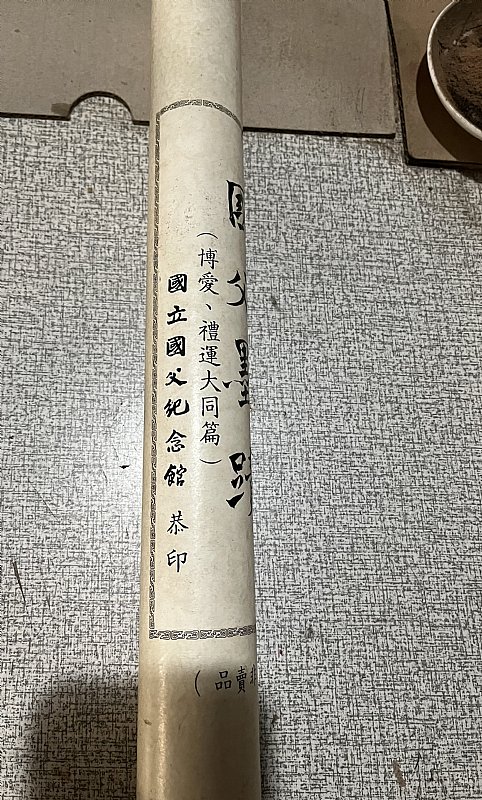 國父墨跡
（博愛、禮運大同篇）
國立國父紀念館 恭印
賣品）